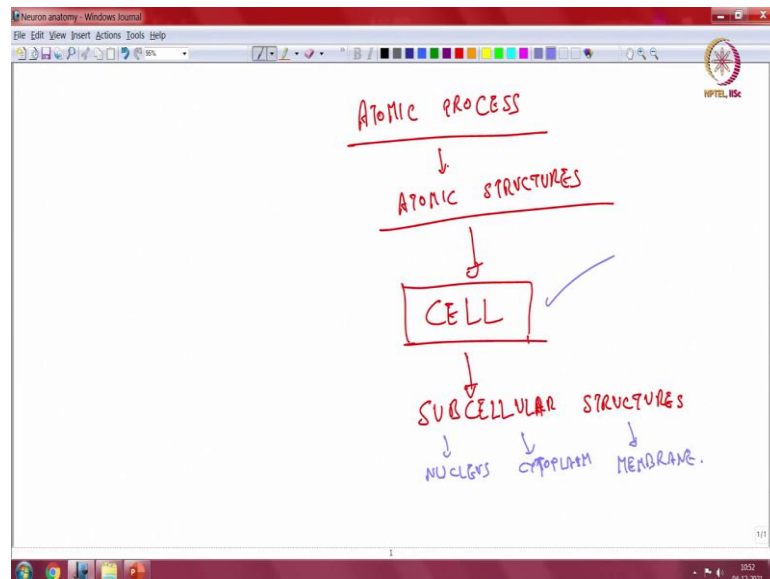 Neuron anatomy - Windows Journal
File Edit View Insert Actions Tools Help
NPTEL, IISc
ATOMIC PROCESS
ATOMIC STRUCTURES
CELL
SUBCELLULAR STRUCTURES
NUCLEUS CYTOPLASM MEMBRANE.
1/1
1
10:52
04-12-2021